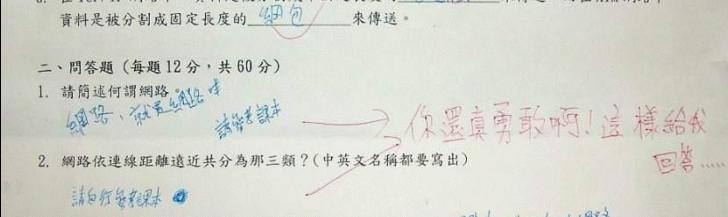 資料是被分割成固定長度的 網包 來傳送。
二、問答題(每題12分,共60分)
1. 請簡述何謂網路
網路、就是網路咩
請參考課本
你還真勇敢啊!這樣給我
回答.....
2. 網路依連線距離遠近共分為那三類?(中英文名稱都要寫出)
請自行參考課本